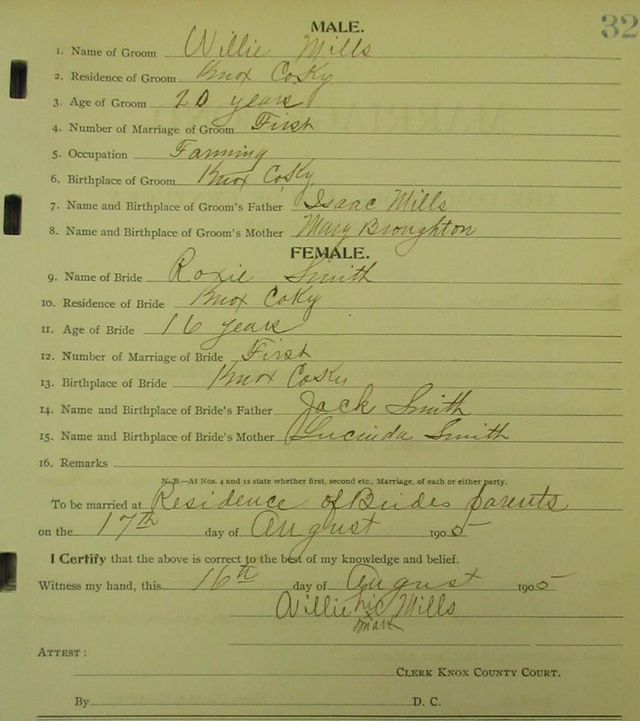 32
MALE.
1. Name of Groom Willie Mills
2. Residence of Groom Knox Co Ky
3. Age of Groom 20 years
4. Number of Marriage of Groom First
5. Occupation Farming
6. Birthplace of Groom Knox Co Ky
7. Name and Birthplace of Groom's Father Isaac Mills
8. Name and Birthplace of Groom's Mother Mary Broughton
FEMALE.
9. Name of Bride Roxie Smith
10. Residence of Bride Knox Co Ky
11. Age of Bride 16 years
12. Number of Marriage of Bride First
13. Birthplace of Bride Knox Co Ky
14. Name and Birthplace of Bride's Father Jack Smith
15. Name and Birthplace of Bride's Mother Lucinda Smith
16. Remarks
N. B.—At Nos. 4 and 12 state whether first, second etc., Marriage, of each or either party.
To be married at Residence of Brides parents
on the 17th day of August 1905
I Certify that the above is correct to the best of my knowledge and belief.
Witness my hand, this 16th day of August 1905
Willie his Mills
mark
ATTEST:
CLERK KNOX COUNTY COURT.
By D. C.